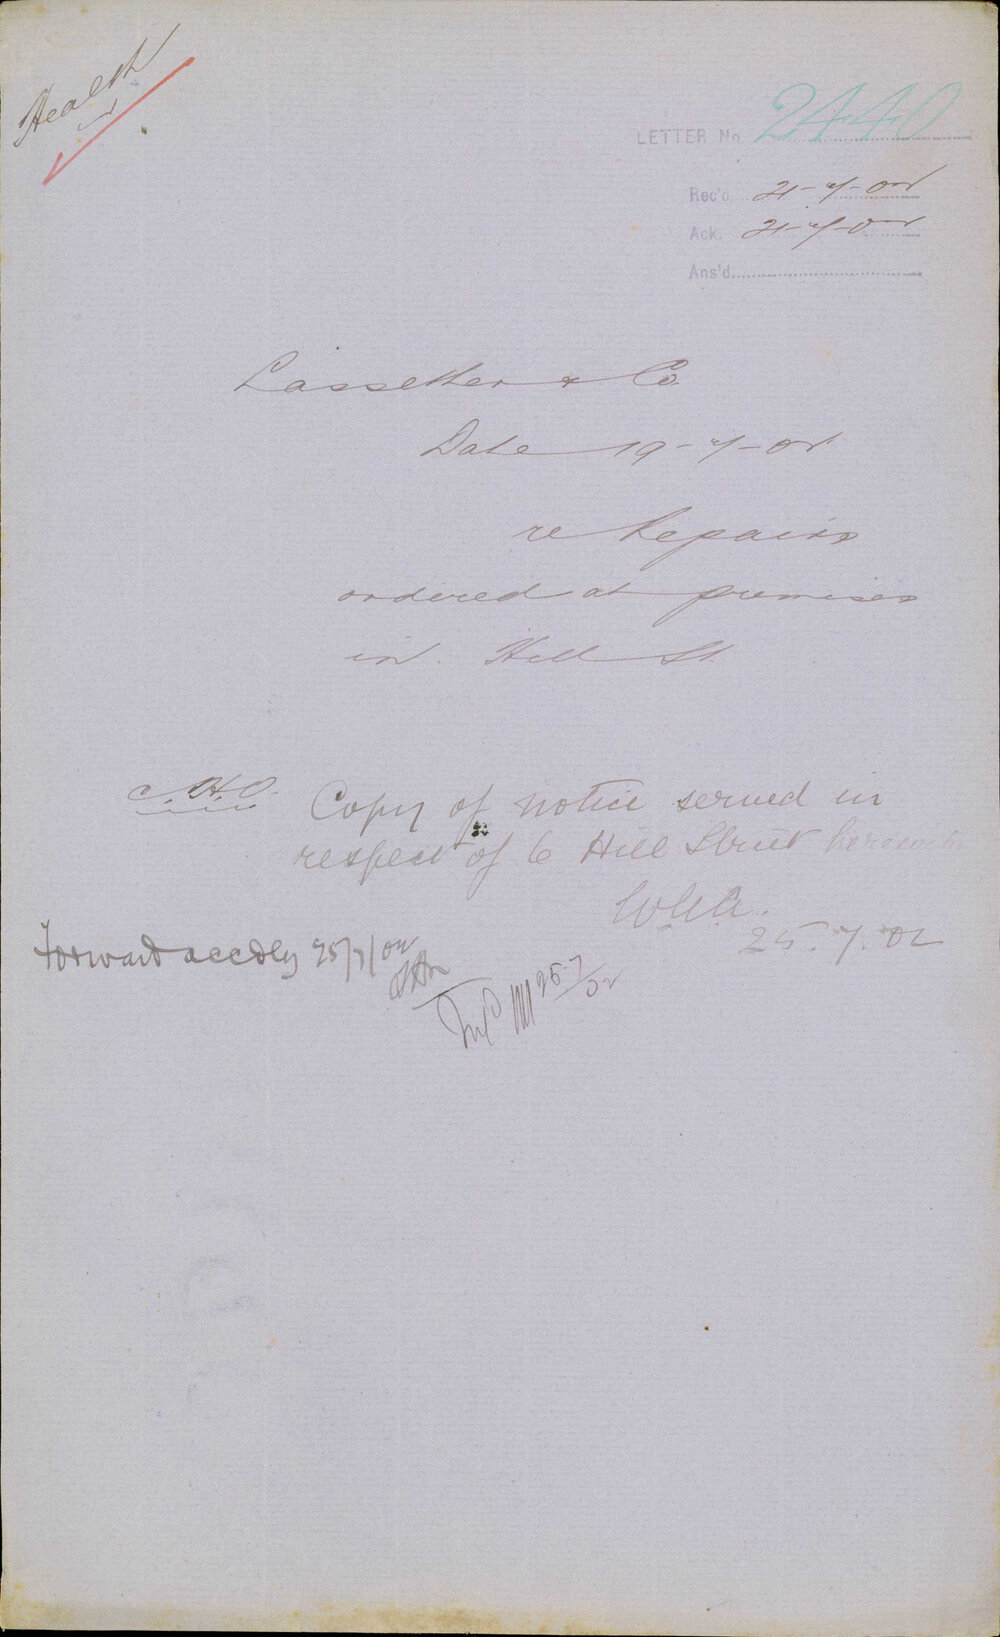 Health
LETTER No 2440
Rec'd 21-7-02
Ack. 21-7-02
Ans'd
Lassetter & Co
Date 19-7-02
re Repairs
ordered at premises
in Hill St
C.H.O. Copy of notice served in
respect of 6 Hill Street herewith
25.7.02
Forward accdly 25/7/02
25-7/02